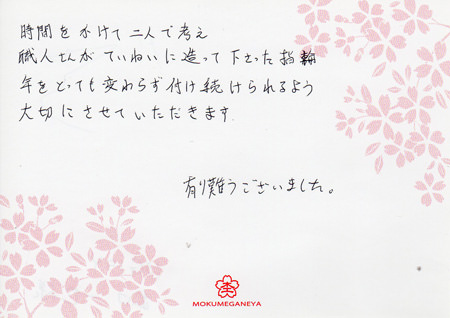 時間をかけて二人で考え
職人さんがていねいに造って下さった指輪
年をとっても変わらず付け続けられるよう
大切にさせていただきます
有り難うございました。
MOKUMEGANEYA